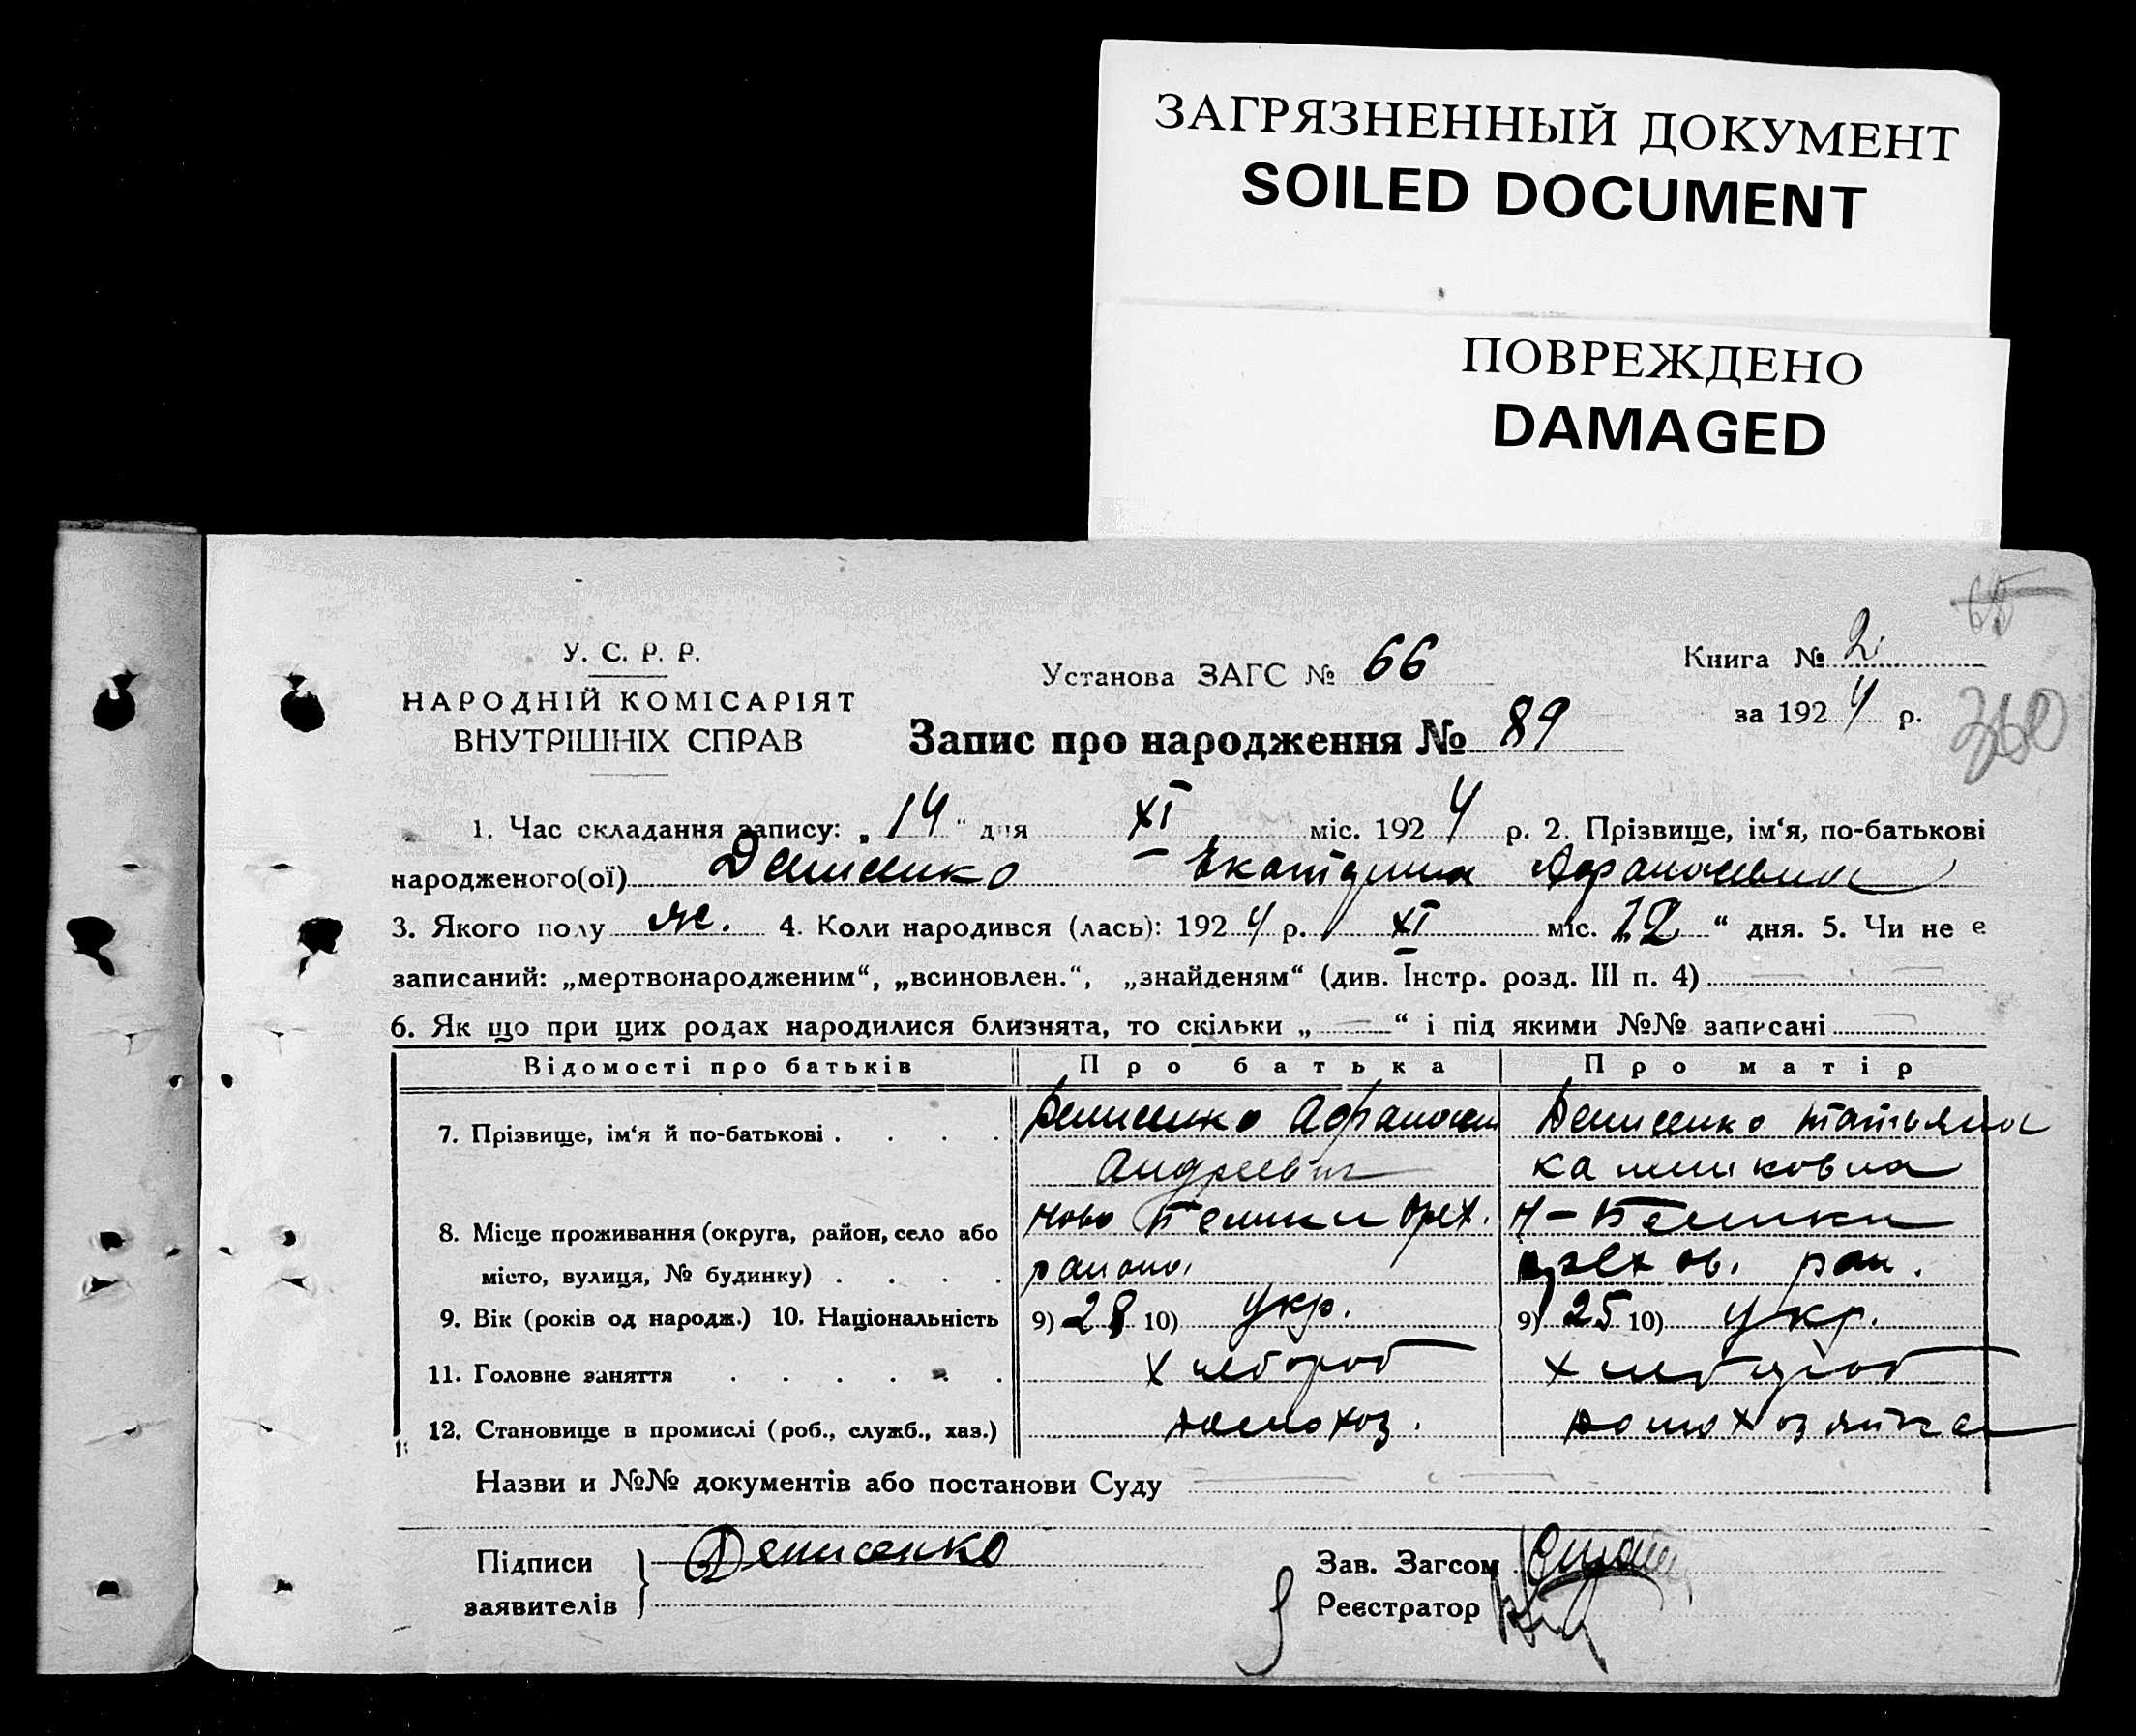 ЗАГРЯЗНЕННЫЙ ДОКУМЕНТ
SOILED DOCUMENT
ПОВРЕЖДЕНО
DAMAGED
65
360
У. С. Р. Р.
НАРОДНІЙ КОМІСАРІЯТ
ВНУТРІШНІХ СПРАВ
Установа ЗАГС № 66
Книга № 2
за 1924 р.
Запис про народження № 89
1. Час складання запису: „14“ дня XI міс. 1924 р. 2. Прізвище, ім‘я, по-батькові
народженого(ої) Денисенко Екатерина
3. Якого полу ж. 4. Коли народився (лась): 1924 р. XI міс. 12 “ дня. 5. Чи не е
записаний: „мертвонародженим“, „всиновлен.“, „знайденям“ (див. Інстр. розд. III п. 4) —
6. Як що при цих родах народилися близнята, то скільки „ — “ і під якими №№ записані —
Відомості про батьків Про батька Про матір
7. Прізвище, ім‘я й по-батькові . . . . Денисенко Денисенко Татьяна
Андреевич
8. Місце проживання (округа, район, село або Ново Белики Орех. Н-Белики
місто, вулиця, № будинку) . . . . района Орехов. рай.
9. Вік (років од народж.) 10. Національність 9) 28 10) укр. 9) 25 10) укр.
11. Головне заняття . . . . . . хлебороб хлебороб
12. Становище в промислі (роб., служб., хаз.) домохоз. домохозяйка
Назви и №№ документів або постанови Суду —
Підписи
заявителів } Денисенко
Зав. Загсом
Реєстратор